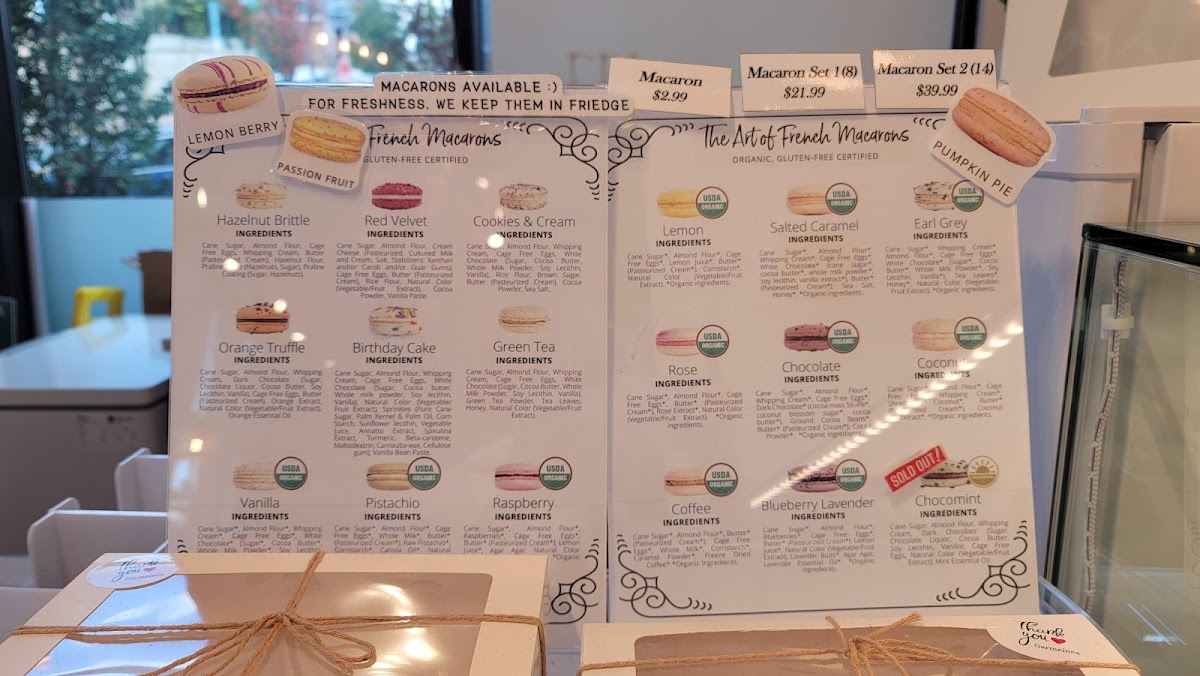 MACARONS AVAILABLE :)
FOR FRESHNESS, WE KEEP THEM IN FRIEDGE
Macaron
$2.99
Macaron Set 1(8)
$21.99
Macaron Set 2 (14)
$39.99
LEMON BERRY
PASSION FRUIT
PUMPKIN PIE
French Macarons
GLUTEN-FREE CERTIFIED
Hazelnut Brittle
INGREDIENTS
Cane Sugar, Almond Flour, Cage
Free Eggs, Whipping Cream, Butter
(Pasteurized Cream), Hazelnut Flour,
(Hazelnuts, Sugar), Praline
Coating (Sugar, Hazelnuts).
Red Velvet
INGREDIENTS
Cane Sugar, Almond Flour, Cream
Cheese (Pasteurized, Cultured Milk
and Cream, Salt, Stabilizers: Xanthan
and/or Carob and/or Guar Gums),
Cage Free Eggs, Butter (Pasteurized
Cream), Rice Flour, Natural Color
(Vegetable/Fruit Extract), Cocoa
Powder, Vanilla Paste.
Cookies & Cream
INGREDIENTS
Cane Sugar, Almond Flour, Whipping
Cream, Cage Free Eggs, White
Chocolate (Sugar, Cocoa Butter,
Whole Milk Powder, Soy Lecithin,
Vanilla), Rice Flour, Brown Sugar,
Butter (Pasteurized Cream), Cocoa
Powder, Sea Salt.
Orange Truffle
INGREDIENTS
Cane Sugar, Almond Flour, Whipping
Cream, Dark Chocolate (Sugar,
Chocolate Liquor, Cocoa Butter, Soy
Lecithin, Vanilla), Cage Free Eggs, Butter
(Pasteurized Cream), Orange Extract,
Natural Color (Vegetable/Fruit Extract),
Orange Essential Oil.
Birthday Cake
INGREDIENTS
Cane Sugar, Almond Flour, Whipping
Cream, Cage Free Eggs, White
Chocolate (Sugar, Cocoa butter,
Whole milk Powder, Soy lecithin,
Vanilla), Natural Color (Vegetable/
Fruit Extract), Sprinkles (Pure Cane
Sugar, Palm Kernel & Palm Oil, Corn
Starch, Sunflower lecithin, Vegetable
Juice, Annatto Extract, Spirulina
Extract, Turmeric, Beta-carotene,
Maltodextrin, Carnauba wax, Cellulose
gum), Vanilla Bean Paste.
Green Tea
INGREDIENTS
Cane Sugar, Almond Flour, Whipping
Cream, Cage Free Eggs, White
Chocolate (Sugar, Cocoa Butter, Whole
Milk Powder, Soy Lecithin, Vanilla),
Green Tea Powder, Tea Leaves,
Honey, Natural Color (Vegetable/Fruit
Extract).
USDA
ORGANIC
Vanilla
INGREDIENTS
Cane Sugar*, Almond Flour*, Whipping
Cream*, Cage Free Eggs*, White
Chocolate* (Sugar*, Cocoa Butter*,
Whole Milk Powder*, Soy Lecithin
USDA
ORGANIC
Pistachio
INGREDIENTS
Cane Sugar*, Almond Flour*, Cage
Free Eggs*, Whole Milk*, Butter*
(Pasteurized Cream*), Raw Pistachio*,
Cornstarch*, Canola Oil*, Natural
USDA
ORGANIC
Raspberry
INGREDIENTS
Cane Sugar*, Almond Flour*,
Raspberries*, Cage Free Eggs*,
Butter* (Pasteurized Cream*), Lemon
Juice*, Agar Agar, Natural Color
*Organic
The Art of French Macarons
ORGANIC, GLUTEN-FREE CERTIFIED
USDA
ORGANIC
Lemon
INGREDIENTS
Cane Sugar*, Almond Flour*, Cage
Free Eggs*, Lemon Juice*, Butter*
(Pasteurized Cream*), Cornstarch*,
Natural Color (Vegetable/Fruit
Extract). *Organic ingredients.
USDA
ORGANIC
Salted Caramel
INGREDIENTS
Cane Sugar*, Almond Flour*,
Whipping Cream*, Cage Free Eggs*,
White Chocolate* (cane sugar*,
cocoa butter*, whole milk powder*,
soy lecithin, vanilla extract*), Butter*
(Pasteurized Cream*), Sea Salt,
Honey* *Organic ingredients.
USDA
ORGANIC
Earl Grey
INGREDIENTS
Cane Sugar*, Whipping Cream*,
Almond Flour*, Cage Free Eggs*,
White Chocolate* (Sugar*, Cocoa
Butter*, Whole Milk Powder*, Soy
Lecithin, Vanilla*), Tea Leaves*,
Honey*, Natural Color (Vegetable/
Fruit Extract). *Organic ingredients.
USDA
ORGANIC
Rose
INGREDIENTS
Cane Sugar*, Almond Flour*, Cage
Free Eggs*, Butter* (Pasteurized
Cream*), Rose Extract*, Natural Color
(Vegetable/Fruit Extract). *Organic
ingredients.
USDA
ORGANIC
Chocolate
INGREDIENTS
Cane Sugar*, Almond Flour*,
Whipping Cream*, Cage Free Eggs*,
Dark Chocolate* (cocoa mass 56.4%*,
coconut blossom sugar*, cocoa
butter*), Ground Cocoa Beans*,
Butter* (Pasteurized Cream*), Cocoa
Powder* *Organic ingredients.
USDA
ORGANIC
Coconut
INGREDIENTS
Cane Sugar*, Almond Flour*, Cage
Free Eggs*, Coconut*, Butter*
(Pasteurized Cream*), Coconut
butter*. *Organic ingredients.
USDA
ORGANIC
Coffee
INGREDIENTS
Cane Sugar*, Almond Flour*, Butter*
(Pasteurized Cream*), Cage Free
Eggs*, Whole Milk*, Cornstarch*,
Caramel Powder*, Freeze Dried
Coffee*. *Organic ingredients.
USDA
ORGANIC
Blueberry Lavender
INGREDIENTS
Cane Sugar*, Almond Flour*,
Blueberries*, Cage Free Eggs*,
Butter* (Pasteurized Cream*), Lemon
Juice*, Natural Color (Vegetable/Fruit
Extract), Lavender Buds*, Agar Agar,
Lavender Essential Oil* *Organic
ingredients.
SOLD OUT!
Chocomint
INGREDIENTS
Cane Sugar, Almond Flour, Whipping
Cream, Dark Chocolate (Sugar,
Chocolate Liquor, Cocoa Butter,
Soy Lecithin, Vanilla), Cage Free
Eggs, Natural Color (Vegetable/Fruit
Extract), Mint Essential Oil.
thank
you
Garmeinea
thank
you
Garmeinea